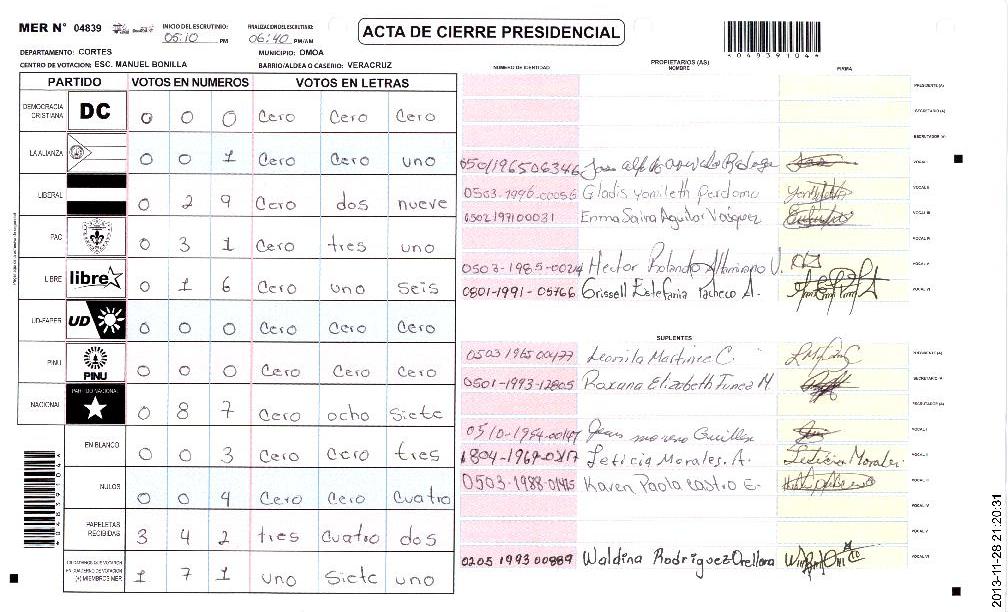 MER N° 04839 INICIO DEL ESCRUTINIO: 05:10 PM FINALIZACION DEL ESCRUTINIO: 06:40 PM/AM
ACTA DE CIERRE PRESIDENCIAL
*04839104*
DEPARTAMENTO: CORTES MUNICIPIO: OMOA
CENTRO DE VOTACION: ESC. MANUEL BONILLA BARRIO/ALDEA O CASERIO: VERACRUZ
PARTIDO VOTOS EN NUMEROS VOTOS EN LETRAS
DEMOCRACIA CRISTIANA DC 0 0 0 Cero Cero Cero
LA ALIANZA 0 0 1 Cero Cero uno
LIBERAL 0 2 9 Cero dos nueve
PAC 0 3 1 Cero tres uno
LIBRE libre 0 1 6 Cero uno Seis
UD-FAPER UD 0 0 0 Cero Cero Cero
PINU PINU 0 0 0 Cero Cero Cero
NACIONAL PARTIDO NACIONAL 0 8 7 Cero ocho Siete
EN BLANCO 0 0 3 Cero Cero tres
NULOS 0 0 4 Cero Cero Cuatro
PAPELETAS RECIBIDAS 3 4 2 tres Cuatro dos
(+) MIEMBROS MER 1 7 1 uno Siete uno
*04839104*
NUMERO DE IDENTIDAD PROPIETARIOS (AS) NOMBRE FIRMA
PRESIDENTE (A)
SECRETARIO (A)
ESCRUTADOR (A)
0501196506346 Jose VOCAL I
0503-1996-00056 Gladis Yamileth Perdomo VOCAL II
0502197100031 Enma Saira Aguilar Vasquez VOCAL III
VOCAL IV
0503-1985-00214 Hector Rolando Altamirano V. VOCAL V
0801-1991-05766 Grissell Estefania Pacheco A. VOCAL VI
SUPLENTES
0503 1965 00477 Leonila Martinez C. PRESIDENTE (A)
0501-1993-12805 Roxana Elizabeth Tunez M. SECRETARIO (A)
ESCRUTADOR (A)
0510-1954-00147 Jesus moreno Guillen VOCAL I
1804-1969-0217 Leticia Morales. A. Leticia Morales. VOCAL II
0503-1988-01415 Karen Paola Castro E. VOCAL III
VOCAL IV
VOCAL V
0205 1993 00889 Waldina Rodriguez Orellana VOCAL VI
2013-11-28 21:20:31